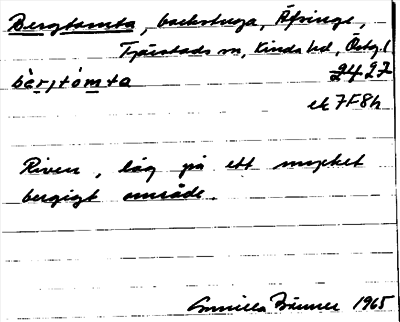 Bergtomta, backstuga, Äsinge,
Tjärstads sn, Kinda hd, Östg.l
bær,tòmta 2427
ek 7F8h
Riven, låg på ett mycket
bergigt område.
Gunilla 1965